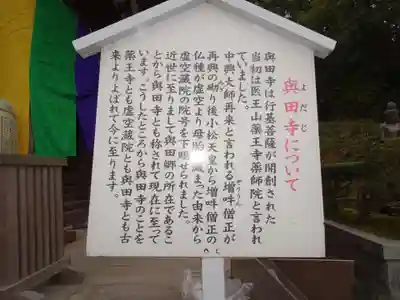 與田寺について
よだじ
與田寺は行基菩薩が開創された
当初は医王山薬王寺薬師院と言われ
ていました。
中興大師再来と言われる増吽僧正が
ぞううん
再興の砌り後小松天皇から増吽僧正の
仏種が虚空より母胎に蔵まった由来から
虚空蔵院の院号を下賜せられました。
近世に至りまして與田郷の所在であるこ
とから與田寺とも称されて現在に至って
います。こうしたところから與田寺のことを
薬王寺とも虚空蔵院とも與田寺とも古
来よりよばれて今に至ります。